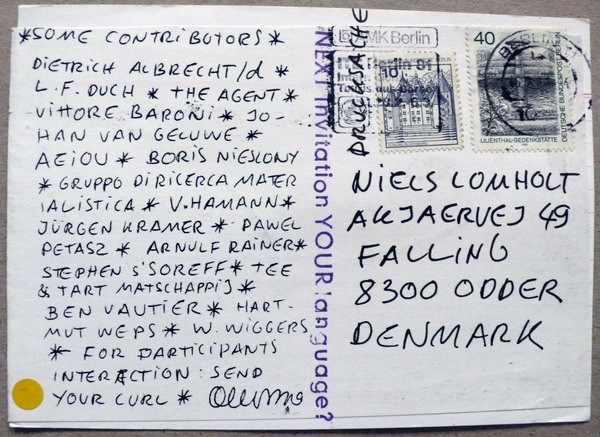 *SOME CONTRIBUTORS*
DIETRICH ALBRECHT/d *
L.F. DUCH * THE AGENT *
VITTORE BARONI * JO-
HAN VAN GELUWE *
AEIOU * BORIS NIESLONY
* GRUPPO DI RICERCA MATER
IALISTICA * V. HAMANN *
JÜRGEN KRAMER * PAWEL
PETASZ * ARNULF RAINER *
STEPHEN S'SOREFF * TEE
& TART MATSCHAPPIJ *
BEN VAUTIER * HART-
MUT WEPS * W. WIGGERS
* FOR PARTICIPANTS
INTERACTION: SEND
YOUR CURL *
NEXT Invitation YOUR language?
DRUCKSACHE
AMK Berlin
Berlin 81
10
40
BERLIN
DEUTSCHE BUNDESPOST BERLIN
LILIENTHAL-GEDENKSTÄTTE
NIELS LOMHOLT
AKJAERVEJ 49
FALLING
8300 ODDER
DENMARK